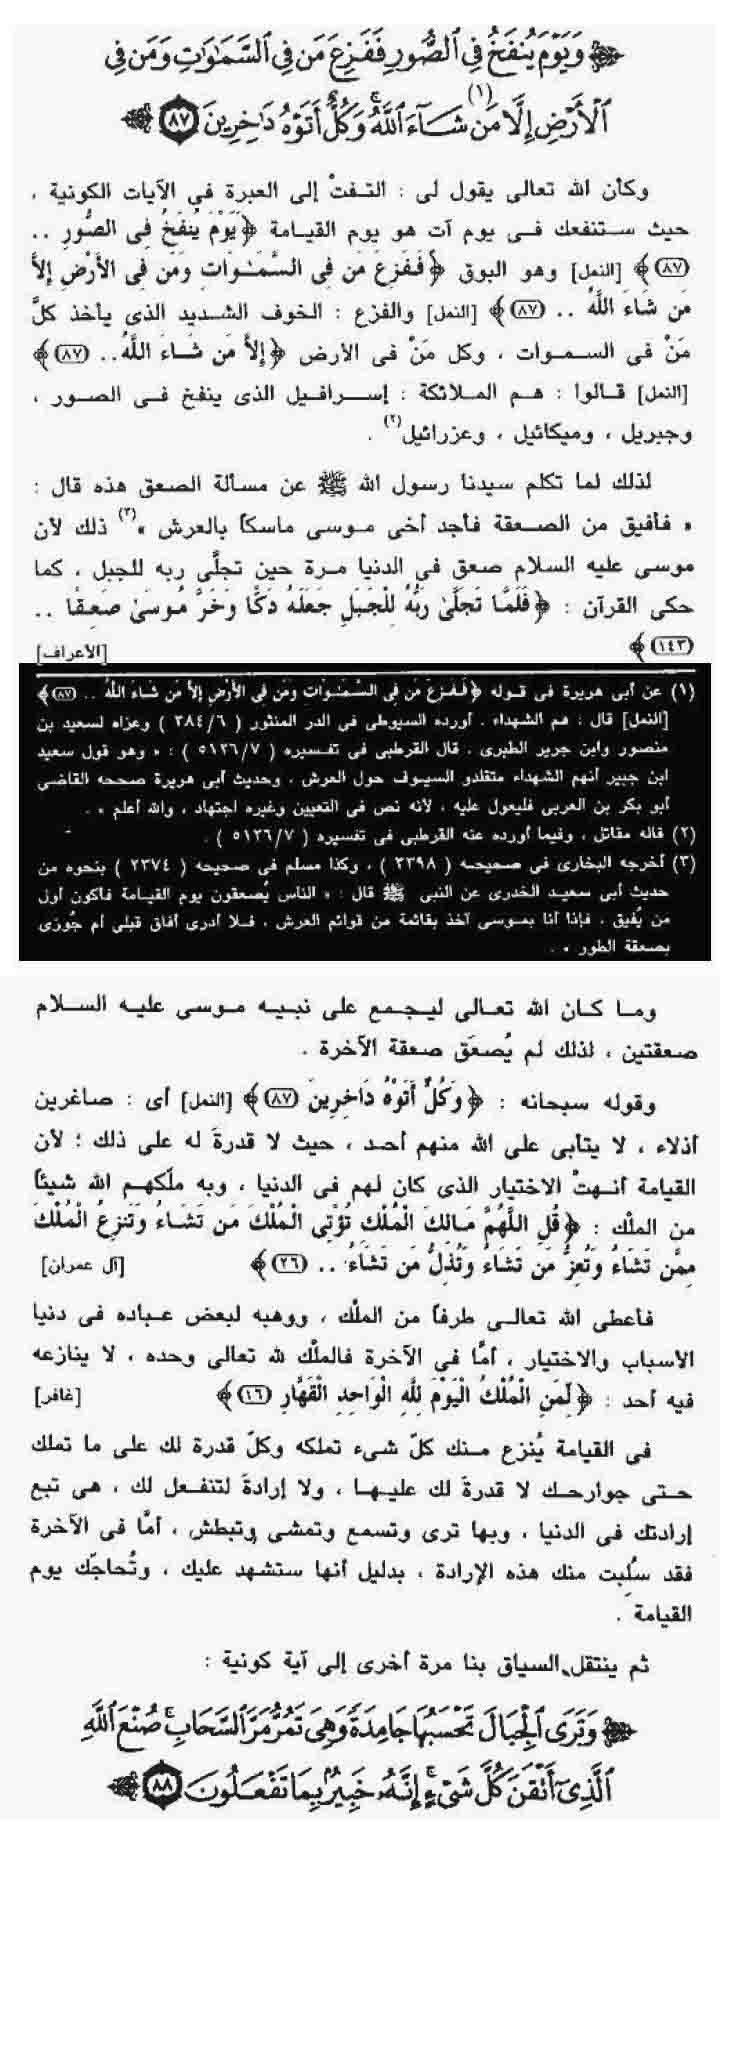 وَيَوْمَ يُنفَخُ فِي ٱلصُّورِ فَفَزِعَ مَن فِي ٱلسَّمَٰوَٰتِ وَمَن فِي
ٱلْأَرْضِ إِلَّا مَن شَآءَ ٱللَّهُ ۚ وَكُلٌّ أَتَوْهُ دَٰخِرِينَ ٨٧ (١)
وكأن الله تعالى يقول لى : التفتْ إلى العبرة فى الآيات الكونية ،
حيث ستنفعك فى يوم آت هو يوم القيامة ﴿يَوْمَ يُنفَخُ فِى الصُّورِ ..
(٨٧)﴾ [النمل] وهو البوق ﴿فَفَزِعَ مَن فِى السَّمَٰوَاتِ وَمَن فِى الأَرْضِ إِلاَّ
مَن شَاءَ اللَّهُ .. (٨٧)﴾ [النمل] والفزع : الخوف الشديد الذى يأخذ كلَّ
مَنْ فى السموات ، وكل مَنْ فى الأرض ﴿إِلاَّ مَن شَاءَ اللَّهُ .. (٨٧)﴾
[النمل] قالوا : هم الملائكة : إسرافيل الذى ينفخ فى الصور ،
وجبريل ، وميكائيل ، وعزرائيل(٢) .
لذلك لما تكلم سيدنا رسول الله ﷺ عن مسألة الصعق هذه قال :
« فأفيق من الصعقة فأجد أخى موسى ماسكاً بالعرش »(٣) ذلك لأن
موسى عليه السلام صعق فى الدنيا مرة حين تجلَّى ربه للجبل ، كما
حكى القرآن : ﴿فَلَمَّا تَجَلَّىٰ رَبُّهُ لِلْجَبَلِ جَعَلَهُ دَكًّا وَخَرَّ مُوسَىٰ صَعِقًا ..
(١٤٣)﴾ [الأعراف]
(١) عن أبى هريرة فى قوله ﴿فَفَزِعَ مَن فِى السَّمَٰوَاتِ وَمَن فِى الأَرْضِ إِلاَّ مَن شَاءَ اللَّهُ .. (٨٧)﴾
[النمل] قال : هم الشهداء . أورده السيوطى فى الدر المنثور ( ٣٨٤/٦ ) وعزاه لسعيد بن
منصور وابن جرير الطبرى . قال القرطبى فى تفسيره ( ٥١٢٦/٧ ) : « وهو قول سعيد
ابن جبير أنهم الشهداء متقلدو السيوف حول العرش ، وحديث أبى هريرة صححه القاضى
أبو بكر بن العربى فليعول عليه ، لأنه نص فى التعيين وغيره اجتهاد ، والله أعلم » .
(٢) قاله مقاتل ، وفيما أورده عنه القرطبى فى تفسيره ( ٥١٢٦/٧ ) .
(٣) أخرجه البخارى فى صحيحه ( ٢٣٩٨ ) ، وكذا مسلم فى صحيحه ( ٢٣٧٤ ) بنحوه من
حديث أبى سعيد الخدرى عن النبى ﷺ قال : « الناس يُصعقون يوم القيامة فأكون أول
من يُفيق ، فإذا أنا بموسى آخذ بقائمة من قوائم العرش ، فلا أدرى أفاق قبلى أم جُوزى
بصعقة الطور » .
وما كان الله تعالى ليجمع على نبيه موسى عليه السلام
صعقتين ، لذلك لم يُصعَق صعقة الآخرة .
وقوله سبحانه : ﴿وَكُلٌّ أَتَوْهُ دَاخِرِينَ (٨٧)﴾ [النمل] أى : صاغرين
أذلاء ، لا يتأبى على الله منهم أحد ، حيث لا قدرةَ له على ذلك ؛ لأن
القيامة أنهتْ الاختيار الذى كان لهم فى الدنيا ، وبه ملّكهم الله شيئاً
من الملْك : ﴿قُلِ اللَّهُمَّ مَالِكَ الْمُلْكِ تُؤْتِى الْمُلْكَ مَن تَشَاءُ وَتَنزِعُ الْمُلْكَ
مِمَّن تَشَاءُ وَتُعِزُّ مَن تَشَاءُ وَتُذِلُّ مَن تَشَاءُ .. (٢٦)﴾ [آل عمران]
فأعطى الله تعالى طرفاً من الملْك ، ووهبه لبعض عباده فى دنيا
الأسباب والاختيار ، أمَّا فى الآخرة فالملْك لله تعالى وحده ، لا ينازعه
فيه أحد : ﴿لِّمَنِ الْمُلْكُ الْيَوْمَ لِلَّهِ الْوَاحِدِ الْقَهَّارِ (١٦)﴾ [غافر]
فى القيامة يُنزع منك كلّ شىء تملكه وكلّ قدرة لك على ما تملك
حتى جوارحك لا قدرةَ لك عليها ، ولا إرادةَ لتنفعل لك ، هى تبع
إرادتك فى الدنيا ، وبها ترى وتسمع وتمشى وتبطش ، أمَّا فى الآخرة
فقد سُلبت منك هذه الإرادة ، بدليل أنها ستشهد عليك ، وتُحاجّك يوم
القيامة .
ثم ينتقل السياق بنا مرة أخرى إلى آية كونية :
وَتَرَى ٱلْجِبَالَ تَحْسَبُهَا جَامِدَةً وَهِيَ تَمُرُّ مَرَّ ٱلسَّحَابِ ۚ صُنْعَ ٱللَّهِ
ٱلَّذِيٓ أَتْقَنَ كُلَّ شَيْءٍ ۚ إِنَّهُۥ خَبِيرٌۢ بِمَا تَفْعَلُونَ ٨٨